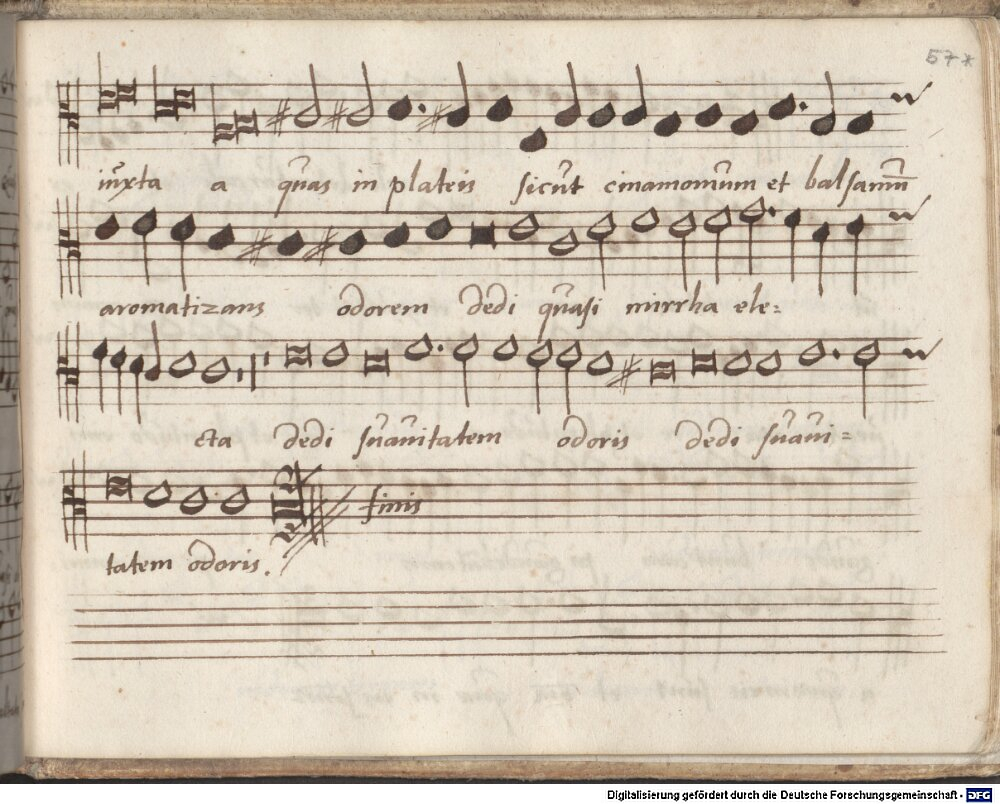 57*
iuxta a quas in plateis sicut cinamomum et balsamũ
aromatizans odorem dedi quasi mirrha ele=
cta dedi suauitatem odoris dedi suaui=
finis
tatem odoris.
Digitalisierung gefördert durch die Deutsche Forschungsgemeinschaft - DFG